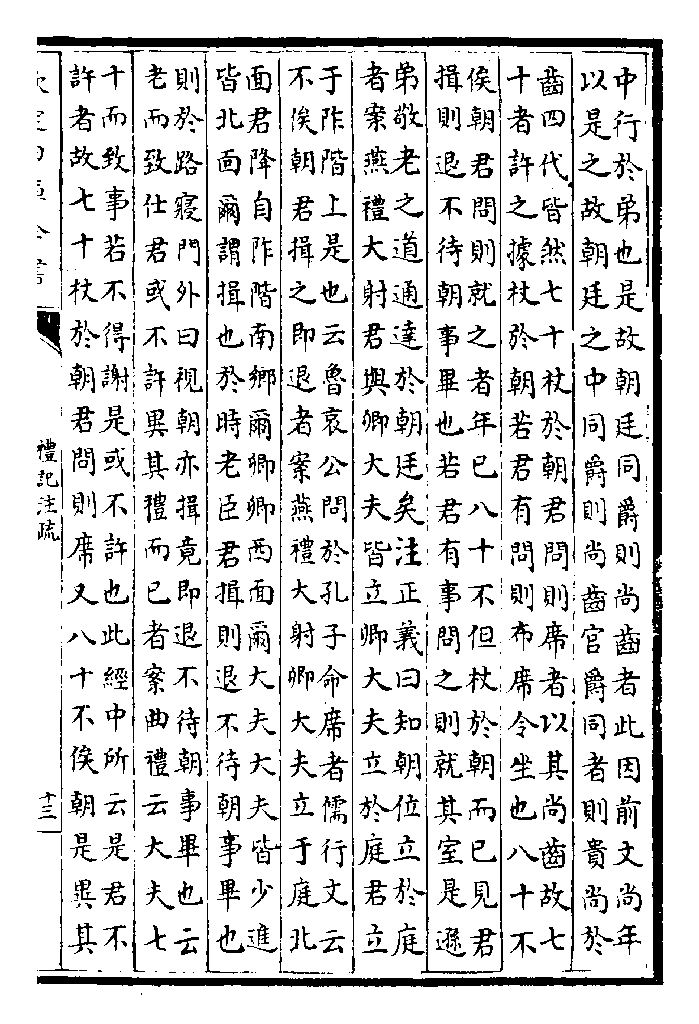 中行於弟也是故朝廷同爵則尚齒者此因前文尚年
以是之故朝廷之中同爵則尚齒官爵同者則貴尚於
齒四代皆然七十杖於朝君問則席者以其尚齒故七
十者許之據杖於朝若君有問則布席令坐也八十不
俟朝君問則就之者年已八十不但杖於朝而已見君
揖則退不待朝事畢也若君有事問之則就其室是遜
弟敬老之道通達於朝廷矣注正義曰知朝位立於庭
者案燕禮大射君與卿大夫皆立卿大夫立於庭君立
于阼階上是也云魯哀公問於孔子命席者儒行文云
不俟朝君揖之即退者案燕禮大射卿大夫立于庭北
面君降自阼階南鄉爾卿卿西面爾大夫大夫皆少進
皆北面爾謂揖也於時老臣君揖則退不待朝事畢也
則於路寢門外曰視朝亦揖竟即退不待朝事畢也云
老而致仕君或不許異其禮而已者案曲禮云大夫七
十而致事若不得謝是或不許也此經中所云是君不
許者故七十杖於朝君問則席又八十不俟朝是異其
禮記注疏
十三